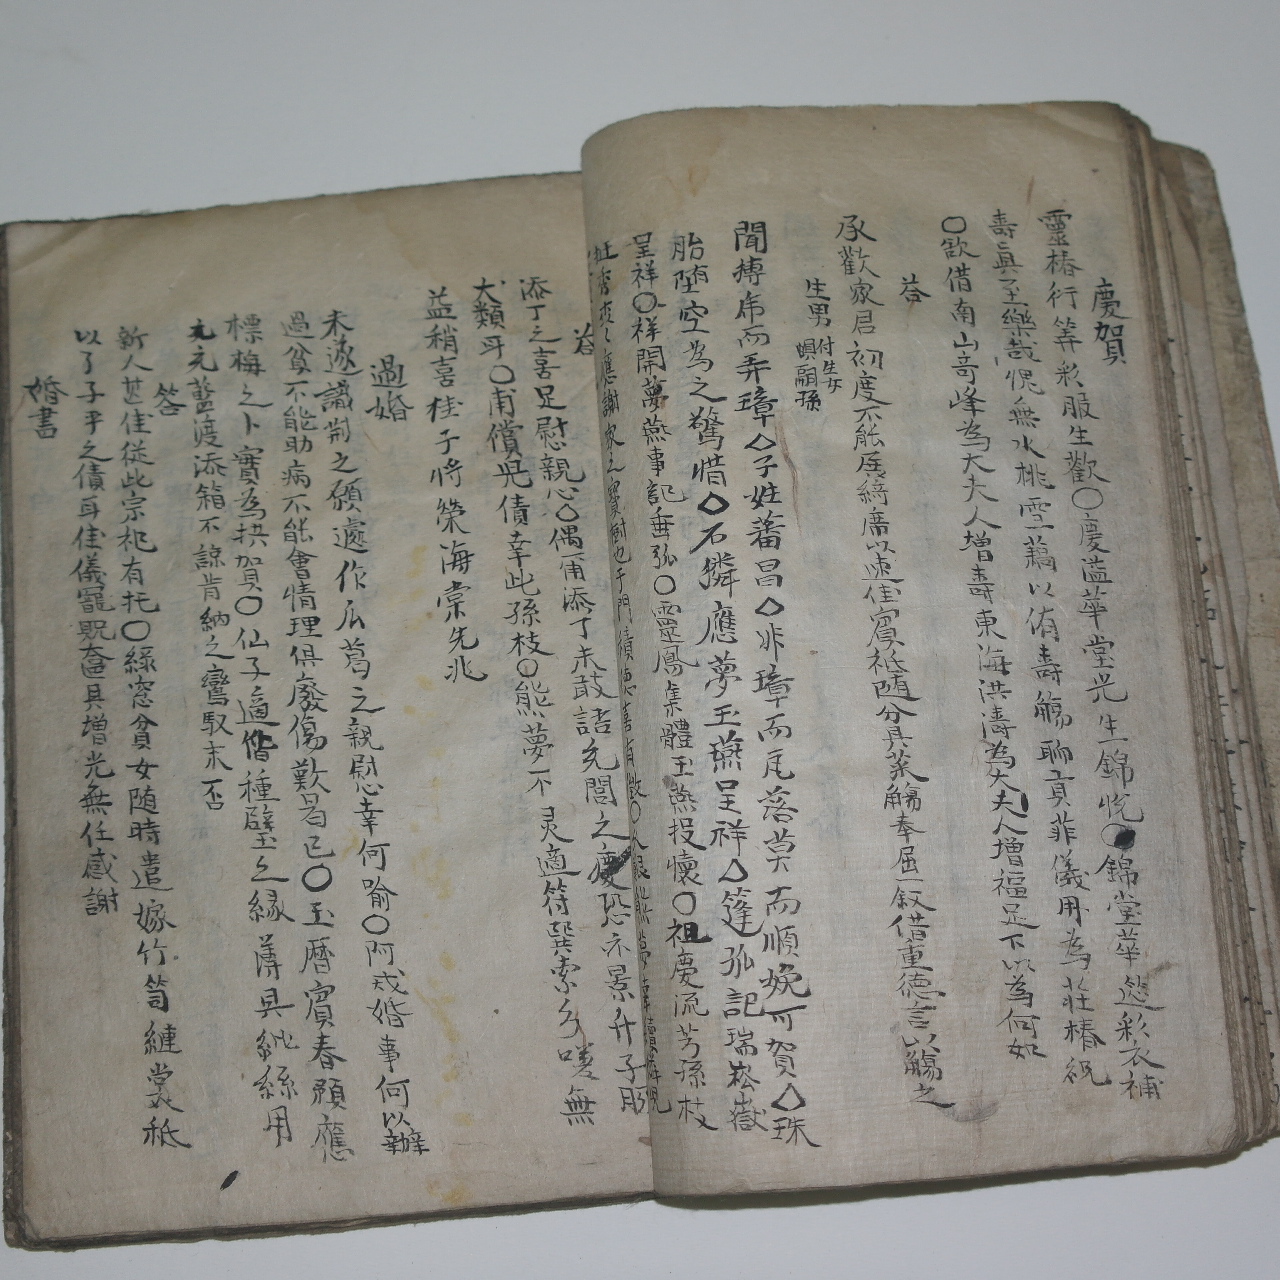 慶賀
靈椿行筭彩服生歡○慶溢華堂光生錦帨○錦堂華筵彩衣補
壽眞至樂哉愧無水桃雪藕以侑壽觴聊貢菲儀用為莊椿祝
○欲借南山奇峰為大夫人增壽東海洪濤為大夫人增福足下以為何如
答
承歡家君初度不能展綺席以速佳賓祗随分具菜觴奉屈一叙借重德言以觴之
生男 付生女
聞搏席而弄璋△子姓蕃昌◇非璋而瓦落莫而順娩可賀△珠
胎堕空為之驚惜◇石隣應夢玉燕呈祥△篷弧記瑞崧嶽
呈祥○祥開夢燕事記垂弧○靈鳳集體玉燕投懷○祖慶流芳孫枝
答
添丁之喜足慰親心○偶甫添丁未敢誥充閭之慶恐亦景升子豚
犬類耳○甫償兒債幸此孫枝○熊夢不灵適符巽索多嘆無
益稍喜桂子將榮海棠先兆
過婚
未遂識荆之願遽作瓜葛之親慰幸何喻○阿戎婚事何以辦
過貧不能助病不能會情理俱廢傷歎曷已○玉曆賓春預應
標梅之卜實為拱賀○仙子適偕種璧之緣薄具純絲用
充元藍渡添箱不諒肯納之鸞馭末否
答
新人甚佳從此宗祀有托○緑窓貧女随時遣嫁竹笥縺裳秪
以了子平之債耳佳儀寵貺奩具增光無任感謝
婚書